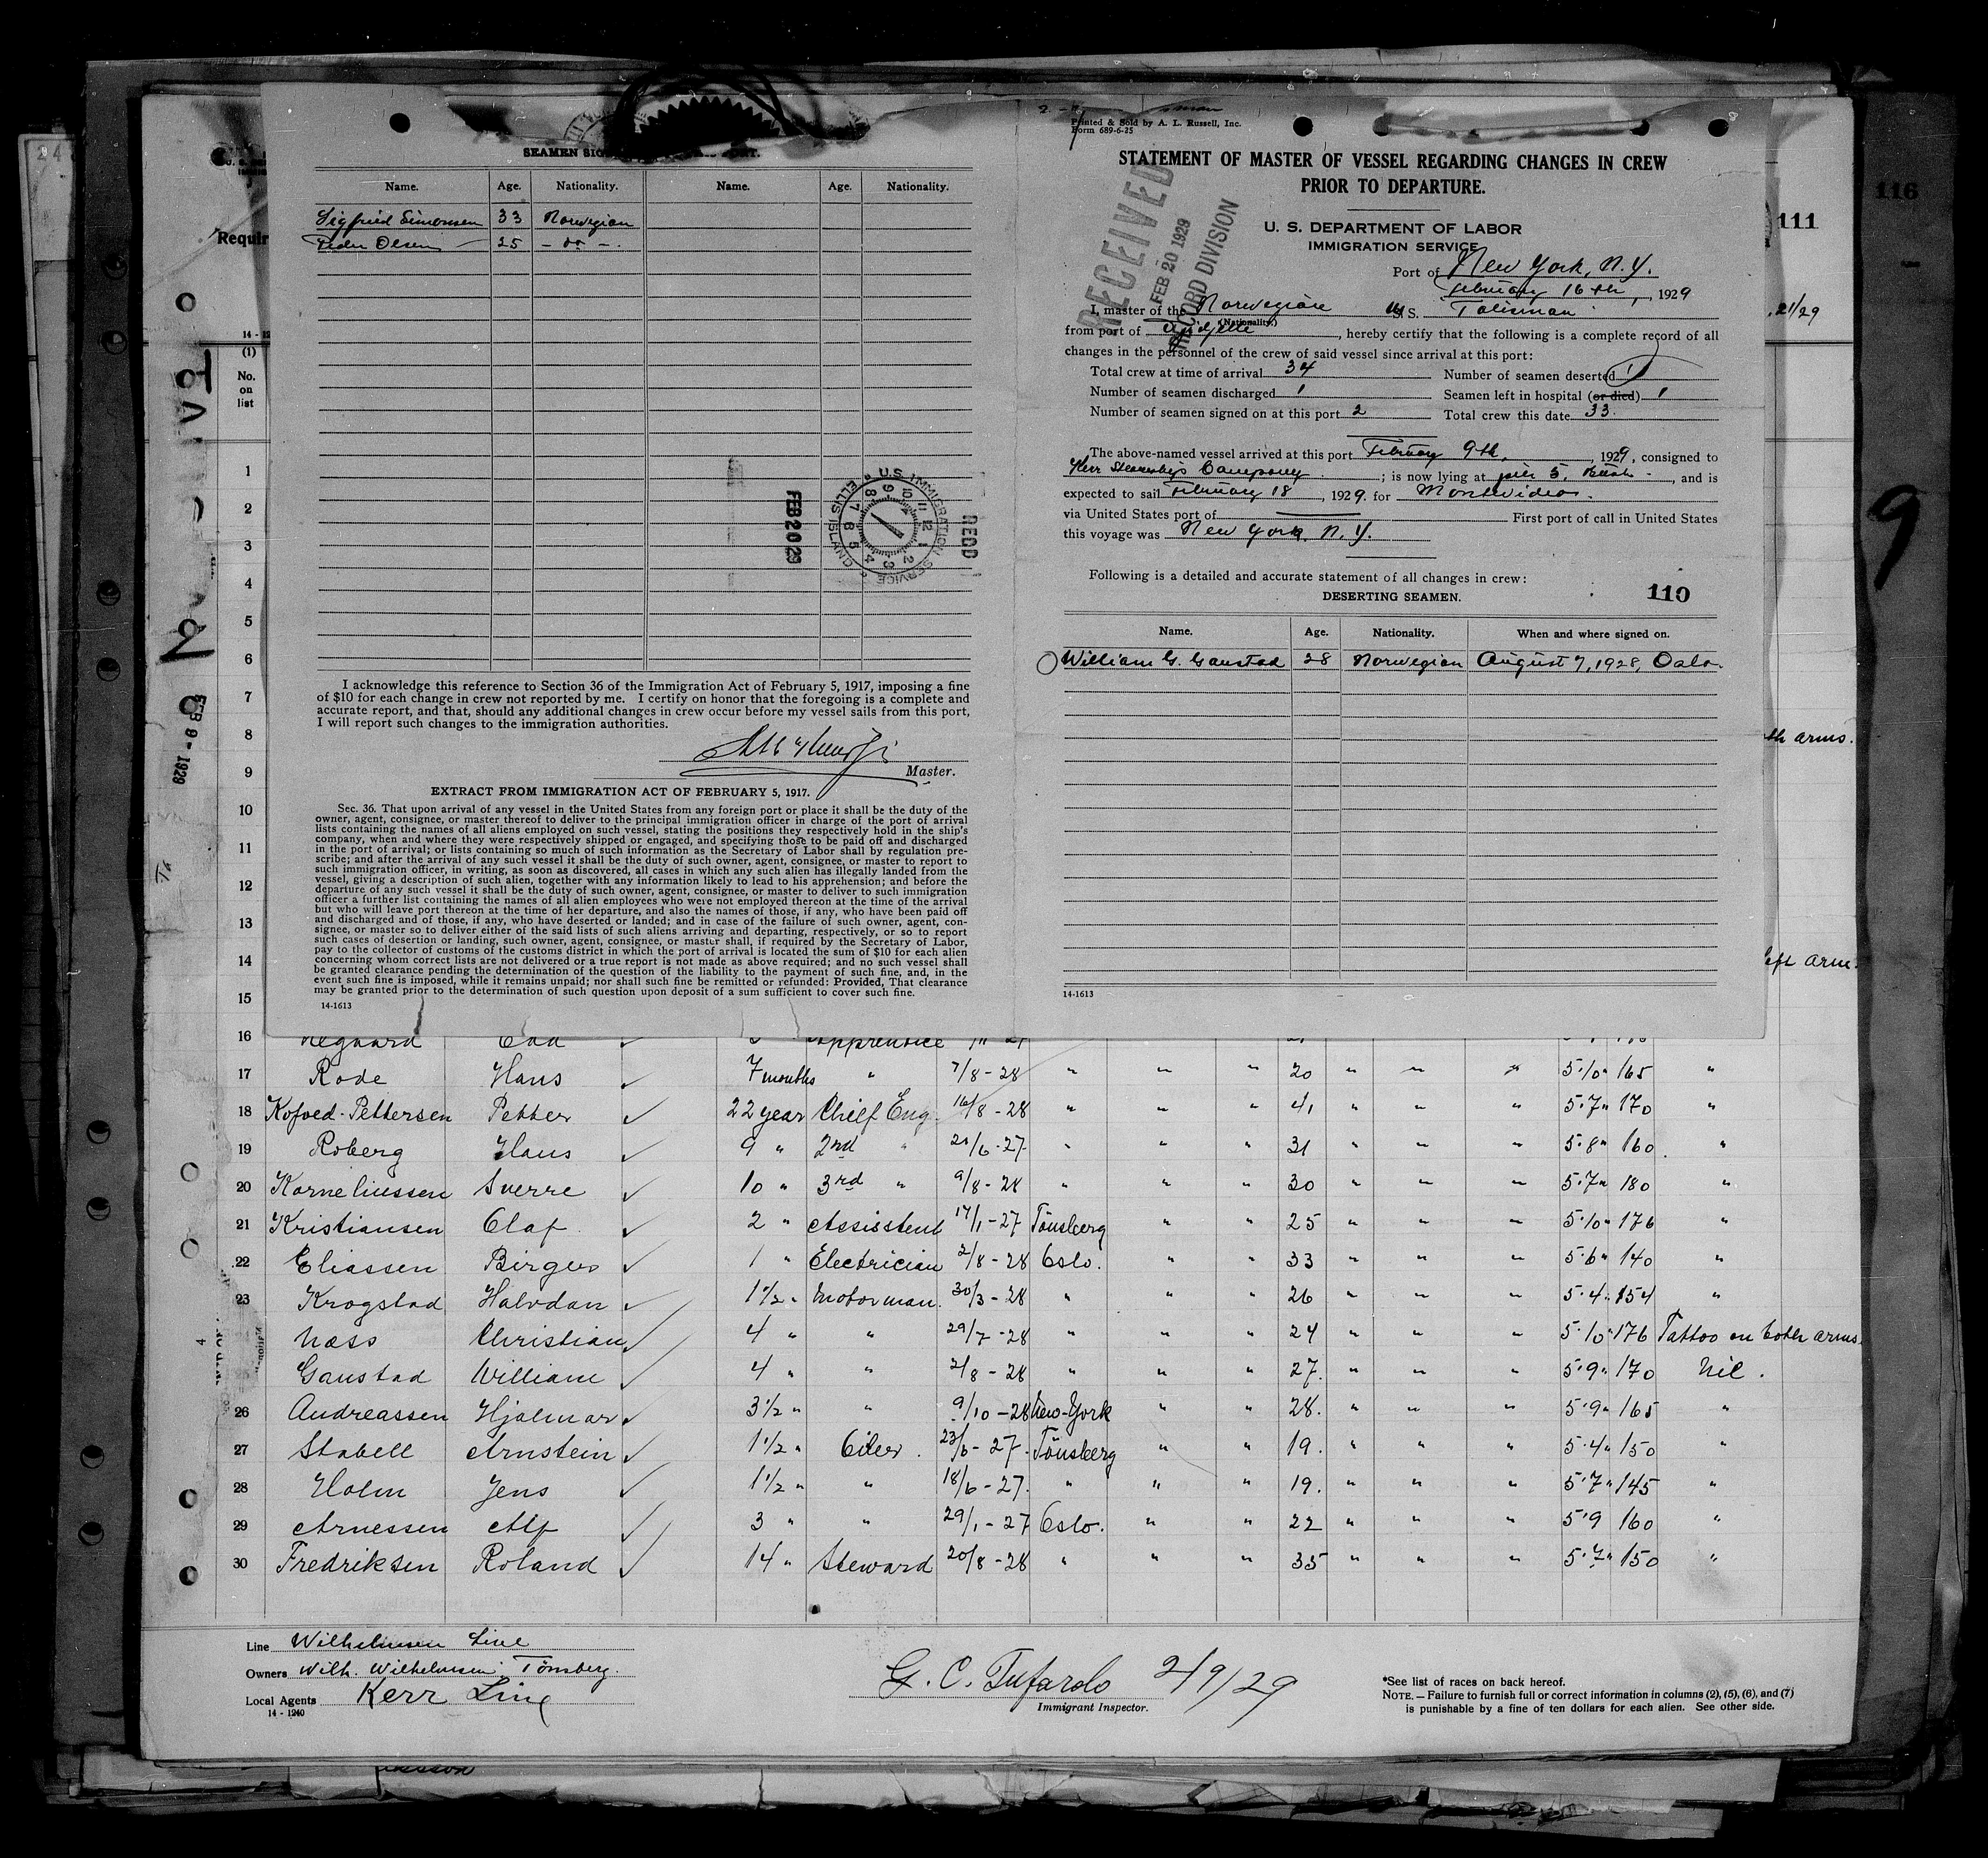 SEAMEN SIG
Name. Age. Nationality. Name. Age. Nationality.
Sigfried Simonsen 33 Norwegian
Peder Olsen — 25 – do –.
U.S. IMMIGRATION SERVICE ELLIS ISLAND
FEB 20 29
RECD
I acknowledge this reference to Section 36 of the Immigration Act of February 5, 1917, imposing a fine
of $10 for each change in crew not reported by me. I certify on honor that the foregoing is a complete and
accurate report, and that, should any additional changes in crew occur before my vessel sails from this port,
I will report such changes to the immigration authorities.
Master.
EXTRACT FROM IMMIGRATION ACT OF FEBRUARY 5, 1917.
Sec. 36. That upon arrival of any vessel in the United States from any foreign port or place it shall be the duty of the
owner, agent, consignee, or master thereof to deliver to the principal immigration officer in charge of the port of arrival
lists containing the names of all aliens employed on such vessel, stating the positions they respectively hold in the ship's
company, when and where they were respectively shipped or engaged, and specifying those to be paid off and discharged
in the port of arrival; or lists containing so much of such information as the Secretary of Labor shall by regulation pre-
scribe; and after the arrival of any such vessel it shall be the duty of such owner, agent, consignee, or master to report to
such immigration officer, in writing, as soon as discovered, all cases in which any such alien has illegally landed from the
vessel, giving a description of such alien, together with any information likely to lead to his apprehension; and before the
departure of any such vessel it shall be the duty of such owner, agent, consignee, or master to deliver to such immigration
officer a further list containing the names of all alien employees who were not employed thereon at the time of the arrival
but who will leave port thereon at the time of her departure, and also the names of those, if any, who have been paid off
and discharged and of those, if any, who have deserted or landed; and in case of the failure of such owner, agent, con-
signee, or master so to deliver either of the said lists of such aliens arriving and departing, respectively, or so to report
such cases of desertion or landing, such owner, agent, consignee, or master shall, if required by the Secretary of Labor,
pay to the collector of customs of the customs district in which the port of arrival is located the sum of $10 for each alien
concerning whom correct lists are not delivered or a true report is not made as above required; and no such vessel shall
be granted clearance pending the determination of the question of the liability to the payment of such fine, and, in the
event such fine is imposed, while it remains unpaid; nor shall such fine be remitted or refunded: Provided, That clearance
may be granted prior to the determination of such question upon deposit of a sum sufficient to cover such fine.
14-1613
Printed & Sold by A. L. Russell, Inc.
Form 689-6-25
STATEMENT OF MASTER OF VESSEL REGARDING CHANGES IN CREW
PRIOR TO DEPARTURE.
U. S. DEPARTMENT OF LABOR
IMMIGRATION SERVICE
RECEIVED
FEB 20 1929
RECORD DIVISION
Port of New York, N.Y.
February 16th, 1929
I, master of the Norwegian M.S. Talisman
(Nationality.)
from port of , hereby certify that the following is a complete record of all
changes in the personnel of the crew of said vessel since arrival at this port:
Total crew at time of arrival 34 Number of seamen deserted 1
Number of seamen discharged 1 Seamen left in hospital (or died) 1
Number of seamen signed on at this port 2 Total crew this date 33.
The above-named vessel arrived at this port February 9th, 1929, consigned to
Kerr Steamship Company ; is now lying at pier 5, Bush , and is
expected to sail February 18, 1929. for Montevideo.
via United States port of First port of call in United States
this voyage was New York, N.Y.
Following is a detailed and accurate statement of all changes in crew:
DESERTING SEAMEN.
110
Name. Age. Nationality. When and where signed on.
William G. Gaustad 28 Norwegian August 7, 1928, Oslo.
14-1613
116
111
9
21/29
th arms.
left arm.
Requir
14 - 12
(1)
No.
on
list
FEB 9 - 1929
1
2
3
4
5
6
7
8
9
10
11
12
13
14
15
16 Apprentice
17 Rode Hans ✓ 7 months " 7/8 - 28 " " " 20 " " " 5.10" 165 "
18 Kofoed-Pettersen Petter ✓ 22 year Chief Eng. 16/8 - 28 " " " 41 " " " 5.7" 170 "
19 Roberg Hans ✓ 9 " 2nd " 21/6 - 27 " " " 31 " " " 5.8" 160. "
20 Korneliussen Sverre ✓ 10 " 3rd " 9/8 - 28 " " " 30 " " " 5.7" 180 "
21 Kristiansen Olaf ✓ 2 " Assistent 17/1 - 27 Tönsberg " " 25 " " " 5.10" 176 "
22 Eliassen Birger ✓ 1 " Electrician 2/8 - 28 Oslo. " " 33 " " " 5.6" 140 "
23 Krogstad Halvdan ✓ 1 1/2 " Motorman. 30/3 - 28 " " " 26 " " " 5.4" 154 "
Næss Christian ✓ 4 " " 29/7 - 28 " " " 24 " " " 5.10" 176 Tattoo on both arms.
Gaustad William ✓ 4 " " 2/8 - 28 " " " 27. " " " 5.9" 170 Nil.
26 Andreassen Hjalmar ✓ 3 1/2 " " 9/10 - 28 New-York " " 28. " " " 5.9" 165 "
27 Stabell Arnstein ✓ 1 1/2 " Oiler. 23/6 - 27. Tönsberg " " 19. " " " 5.4" 150 "
28 Holm Jens ✓ 1 1/2 " " 18/6 - 27. " " " 19. " " " 5.7" 145 "
29 Arnessen Alf ✓ 3 " " 29/1 - 27 Oslo. " " 22 " " " 5.9 160 "
30 Fredriksen Roland ✓ 14 " Steward 20/8 - 28 " " " 35 " " " 5.7" 150 "
Line Wilhelmsen Line
Owners Wilh. Wilhelmsen, Tönsberg.
Local Agents Kerr Line
14 - 1240
G. C. Tufardo 2/9/29
Immigrant Inspector.
*See list of races on back hereof.
NOTE.—Failure to furnish full or correct information in columns (2), (5), (6), and (7)
is punishable by a fine of ten dollars for each alien. See other side.